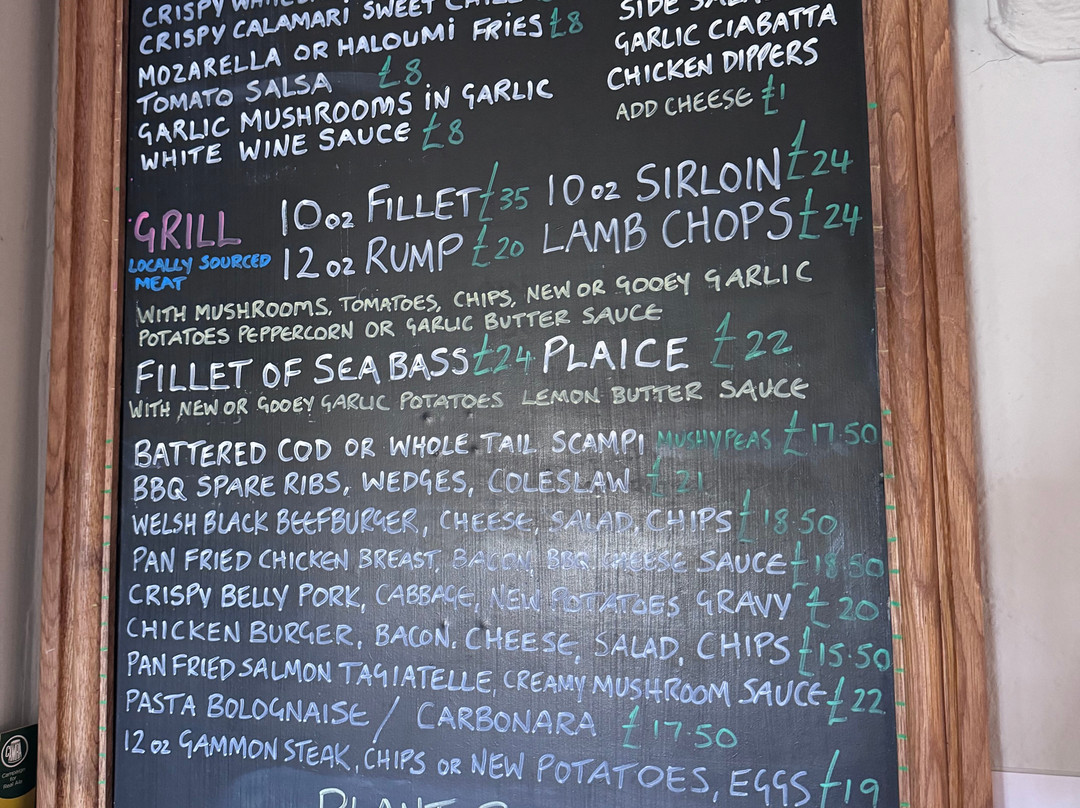 CRISPY
CRISPY CALAMARI SWEET
MOZARELLA OR HALOUMI FRIES £8
TOMATO SALSA £8
GARLIC MUSHROOMS IN GARLIC
WHITE WINE SAUCE £8
SIDE
GARLIC CIABATTA
CHICKEN DIPPERS
ADD CHEESE £1
GRILL
LOCALLY SOURCED
MEAT
10oz FILLET £35 10oz SIRLOIN £24
12oz RUMP £20 LAMB CHOPS £24
WITH MUSHROOMS, TOMATOES, CHIPS, NEW OR GOOEY GARLIC
POTATOES PEPPERCORN OR GARLIC BUTTER SAUCE
FILLET OF SEA BASS £24 PLAICE £22
WITH NEW OR GOOEY GARLIC POTATOES LEMON BUTTER SAUCE
BATTERED COD OR WHOLE TAIL SCAMPI MUSHY PEAS £17.50
BBQ SPARE RIBS, WEDGES, COLESLAW £21
WELSH BLACK BEEFBURGER, CHEESE, SALAD, CHIPS £18.50
PAN FRIED CHICKEN BREAST, BACON, BBQ CHEESE SAUCE £18.50
CRISPY BELLY PORK, CABBAGE, NEW POTATOES GRAVY £20
CHICKEN BURGER, BACON. CHEESE, SALAD, CHIPS £15.50
PAN FRIED SALMON TAGIATELLE, CREAMY MUSHROOM SAUCE £22
PASTA BOLOGNAISE / CARBONARA £17.50
12oz GAMMON STEAK, CHIPS OR NEW POTATOES, EGGS £19
PLANT
Campaign
for
Real Ale